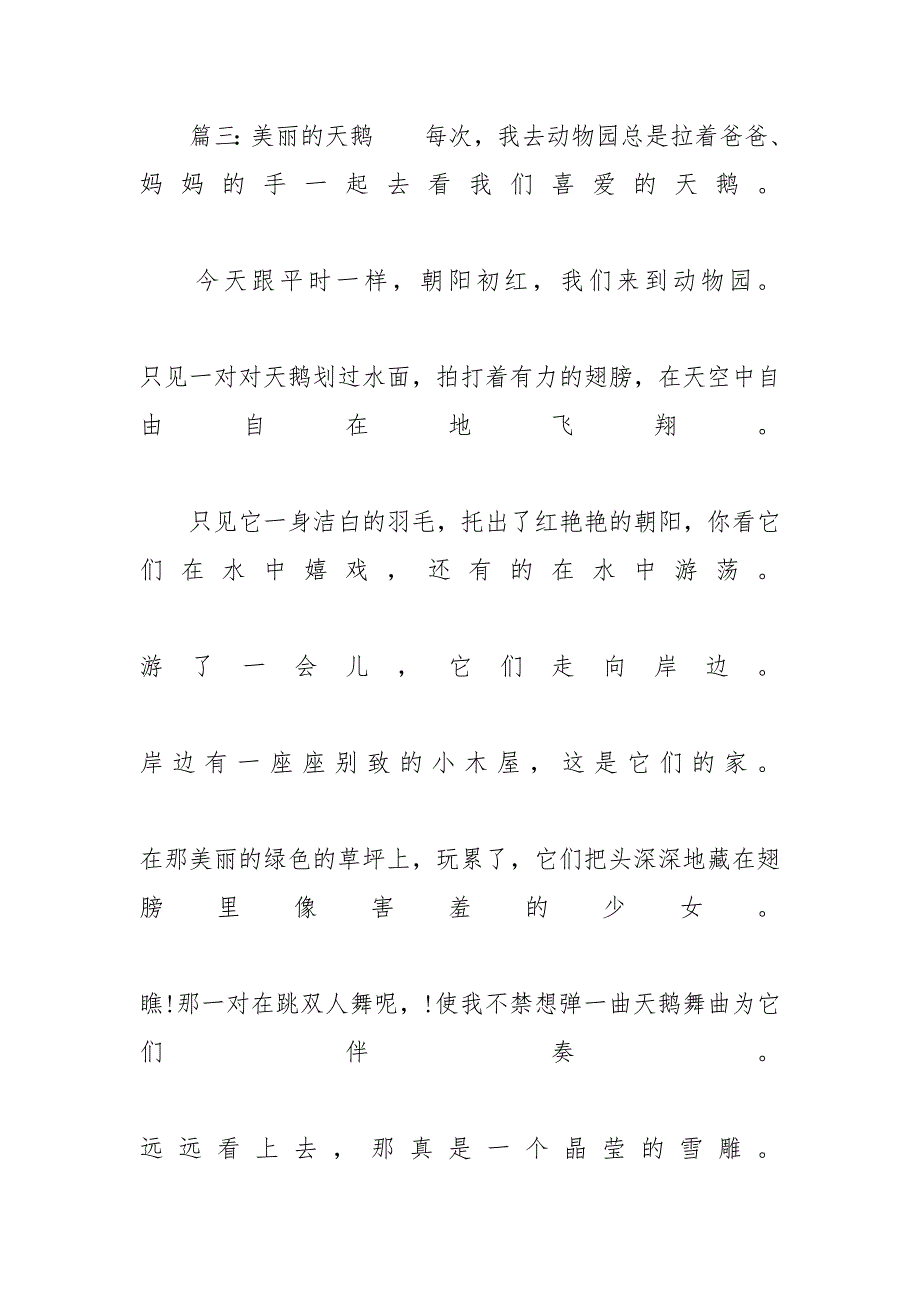 篇三：美丽的天鹅　　每次，我去动物园总是拉着爸爸、
妈妈的手一起去看我们喜爱的天鹅。
今天跟平时一样，朝阳初红，我们来到动物园。
只见一对对天鹅划过水面，拍打着有力的翅膀，在天空中自
由自在地飞翔。
只见它一身洁白的羽毛，托出了红艳艳的朝阳，你看它
们在水中嬉戏，还有的在水中游荡。
游了一会儿，它们走向岸边。
岸边有一座座别致的小木屋，这是它们的家。
在那美丽的绿色的草坪上，玩累了，它们把头深深地藏在翅
膀里像害羞的少女。
瞧!那一对在跳双人舞呢，!使我不禁想弹一曲天鹅舞曲为它
们伴奏。
远远看上去，那真是一个晶莹的雪雕。